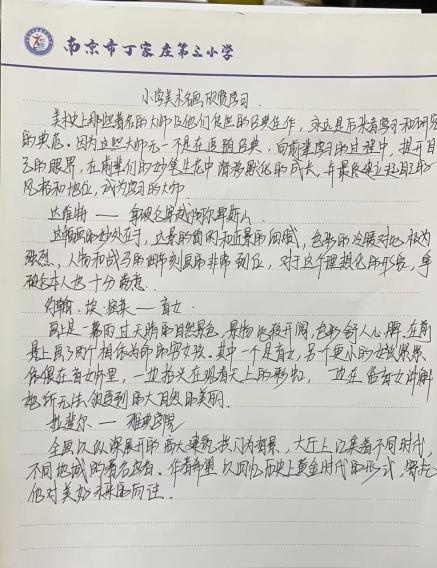 南京市丁家庄第二小学
小学美术名画欣赏学习.
美术史上那些著名的大师及他们传世的经典佳作,永远是后来者学习和研究
的典范。因为这些大师无一不是在追随经典,向前辈学习的过程中,提升自
己的眼界,在前辈们的妙笔生花中潜移默化的成长,并最终建立起自己的
风格和地位,成为学习的大师
达维特——拿破仑穿越阿尔卑斯山
这幅画的妙处在于,远景的简约和近景的细腻,色彩的冷暖对比极为
强烈,人物和战马的细节刻画的非常到位,对于这个理想化的形象,拿
破仑本人也十分满意.
约翰·埃·密莱——盲女
画上是一幕雨过天晴的自然景色,景物比较开阔,色彩舒人心脾,在前
景上画了两个相依为命的穷女孩。其中一个是盲女,另个更小的女孩紧紧
依偎在盲女怀里,一边抬头在观看天上的彩虹,一边在给盲女讲解
她所无法领受到的大自然的美丽.
拉斐尔——雅典学院
全画以纵深展开的高大建筑拱门为背景,大厅上汇集着不同时代,
不同地域的著名学者。作者希望以回忆历史上黄金时代的形式,寄托
他对美好未来的向往。